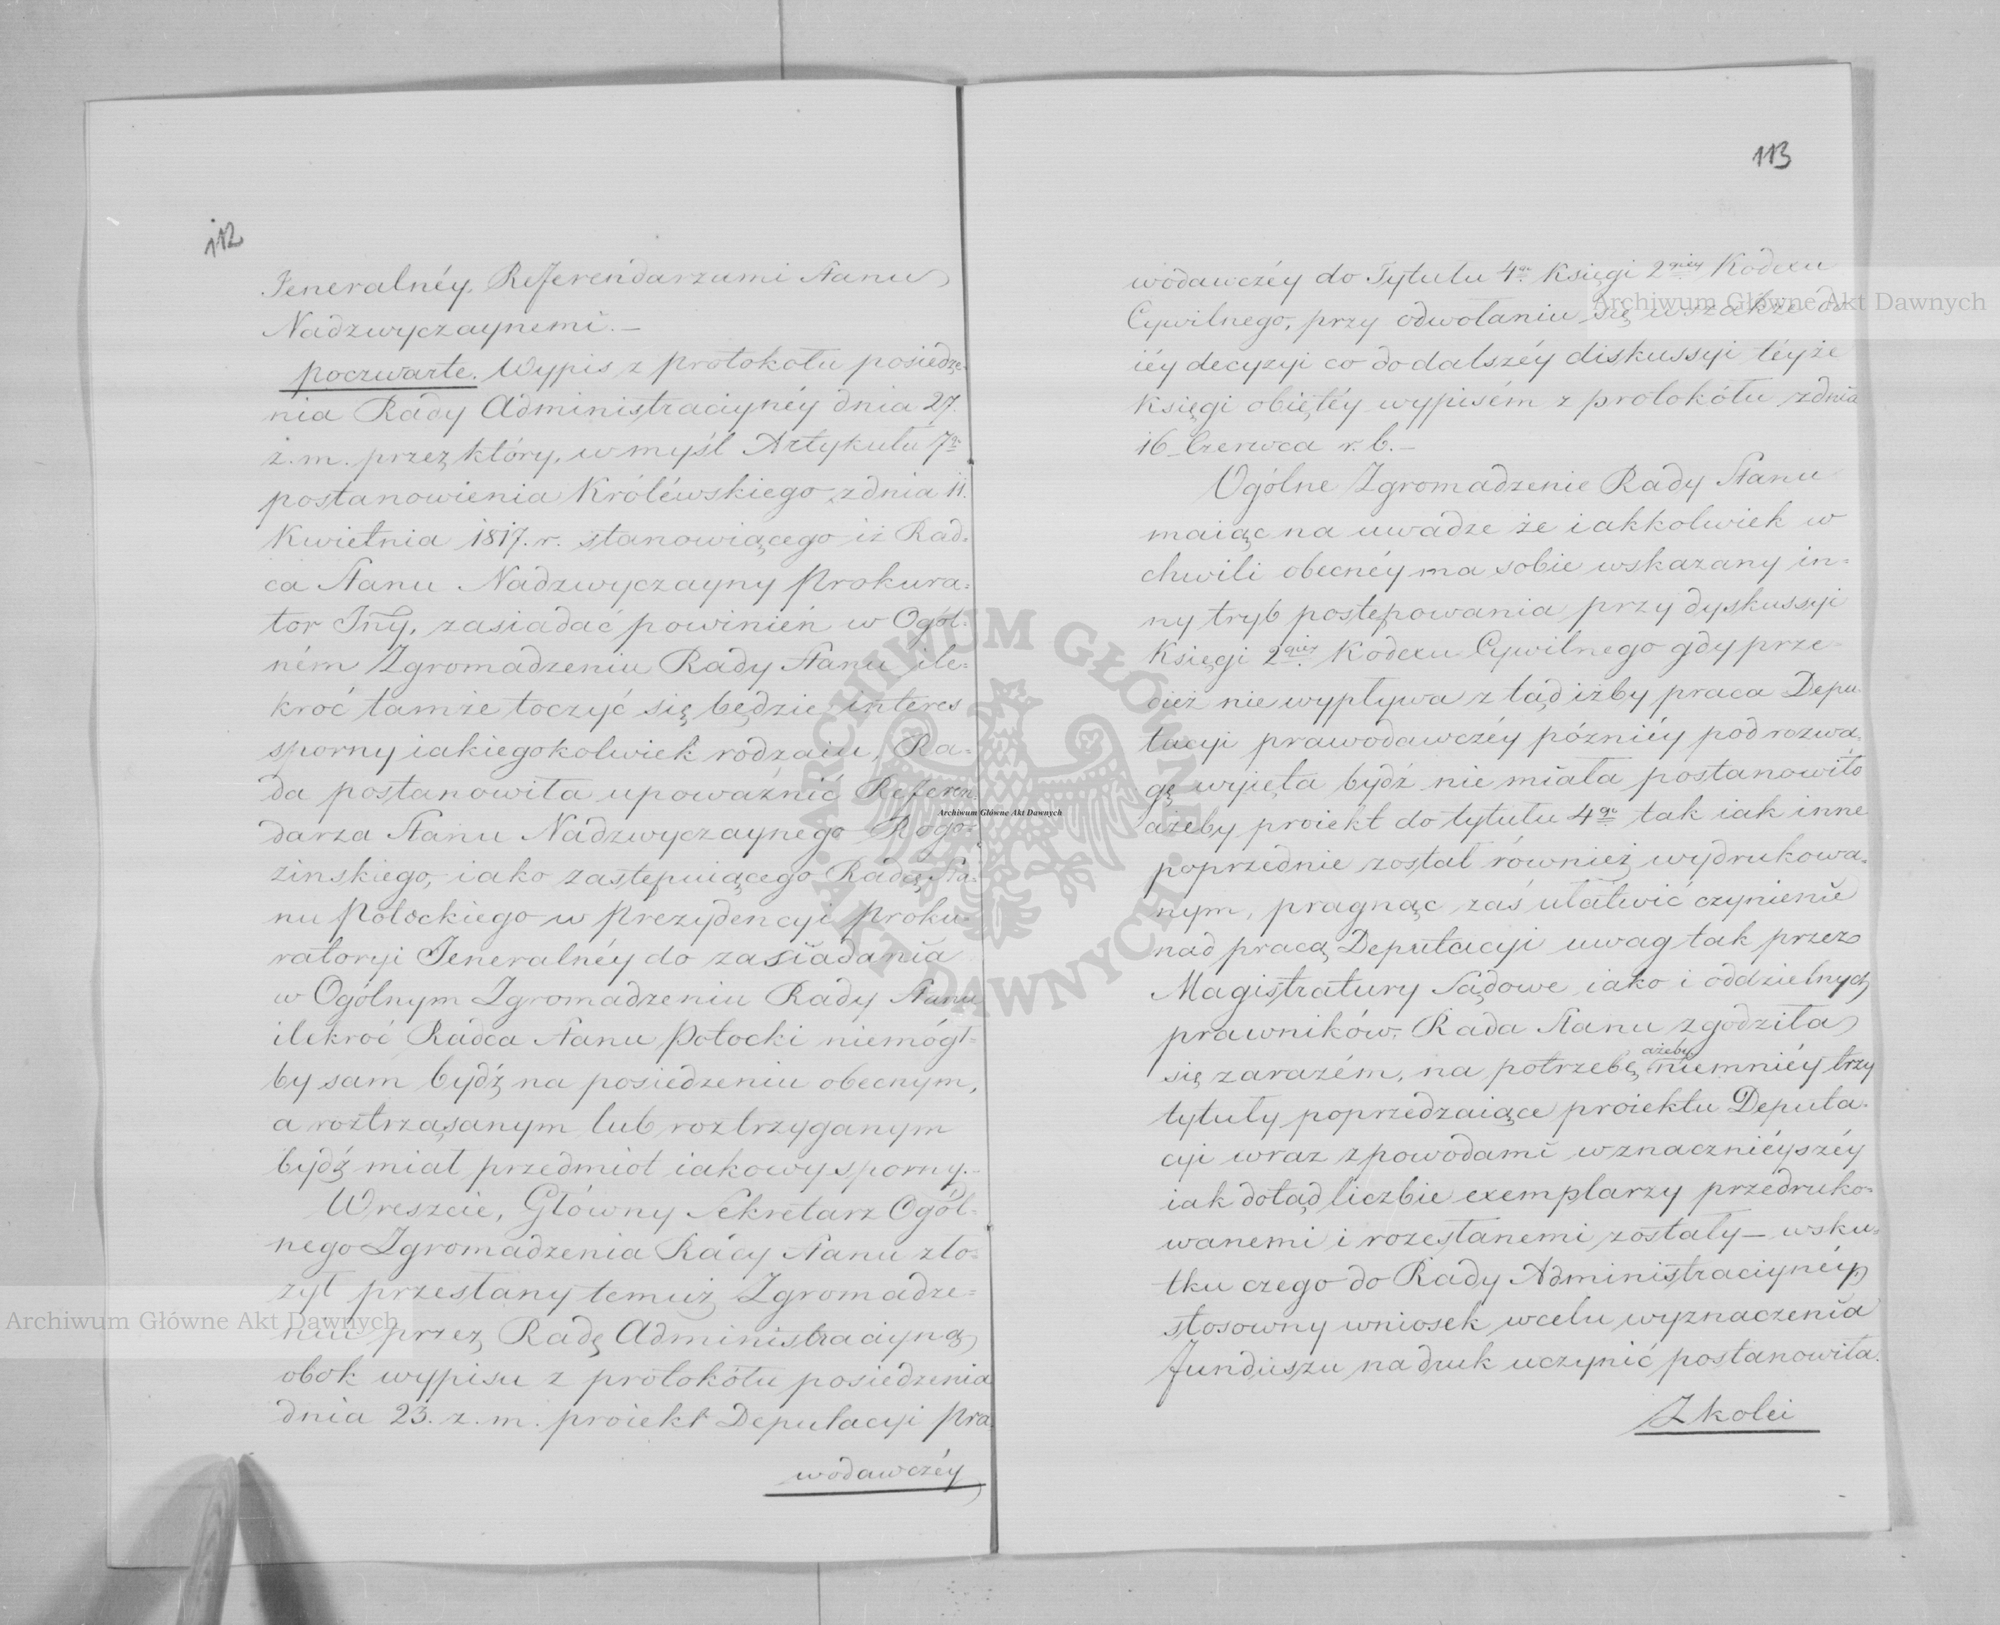 112
Jeneralnéy, Referendarzami Stanu
Nadzwyczaynemi.—
poczwarte. Wypis z protokołu posiedze-
nia Rady Administracyinéy dnia 27.
z. m. przez który, w myśl Artykułu 7go
postanowienia Królewskiego z dnia 11.
Kwietnia 1817. r. stanowiącego iż Rad-
ca Stanu Nadzwyczayny Prokura-
tor Jny, zasiadać powinién w Ogól-
ném Zgromadzeniu Rady Stanu ile-
kroć tamże toczyć się będzie interes
sporny iakiegokolwiek rodzaiu, Ra-
da postanowiła upoważnić Referen-
darza Stanu Nadzwyczaynego Rogo-
zinskiego, iako zastępuiącego Radcę Sta-
nu Potockiego w Prezydencyi Proku-
ratoryi Jeneralnéy do zasiadania
w Ogólnym Zgromadzeniu Rady Stanu
ilekroć Radca Stanu Potocki niemógł-
by sam bydź na posiedzeniu obecnym,
a roztrząsanym lub roztrzyganym
bydź miał przedmiot iakowy sporny.—
Wreszcie, Główny Sekretarz Ogól-
nego Zgromadzenia Rady Stanu zło-
żył przesłany temuż Zgromadze-
niu przez Radę Administracyiną
obok wypisu z protokółu posiedzenia
dnia 23. z. m. proiekt Deputacyi Pra-
wodawczéy
113
wodawczéy do Tytułu 4go Księgi 2giéy Kodexu
Cywilnego, przy odwołaniu się wszakże do
iéy decyzyi co do dalszéy diskussyi téyże
Księgi obiętéy wypisém z protokółu z dnia
16 Czerwca r. b.—
Ogólne Zgromadzenie Rady Stanu
maiąc na uwadze że iakkolwiek w
chwili obecnéy ma sobie wskazany in-
ny tryb postępowania przy dyskussyi
Księgi 2giéy Kodexu Cywilnego gdy prze-
cież nie wypływa ztąd iżby praca Depu-
tacyi prawodawczéy późniéy pod rozwa-
gę wzięta bydź nie miała postanowiło
ażeby proiekt do tytułu 4go tak iak inne
poprzednie został również wydrukowa-
nym, pragnąc zaś ułatwić czynienie
nad pracą Deputacyi uwag tak przez
Magistratury Sądowe iako i oddzielnych
prawników. Rada Stanu zgodziła
się zarazém, na potrzebę ażeby niemniéy trzy
tytuły poprzedzaiące proiektu Deputa-
cyi wraz z powodami w znacznieyszéy
iak dotąd liczbie exemplarzy przedruko-
wanemi i rozesłanemi zostały — wsku-
tku czego do Rady Administracyinéy
stosowny wniosek w celu wyznaczenia
funduszu na druk uczynić postanowiła.
Z kolei
Archiwum Główne Akt Dawnych
Archiwum Główne Akt Dawnych
Archiwum Główne Akt Dawnych
ARCHIWUM GŁÓWNE AKT DAWNYCH